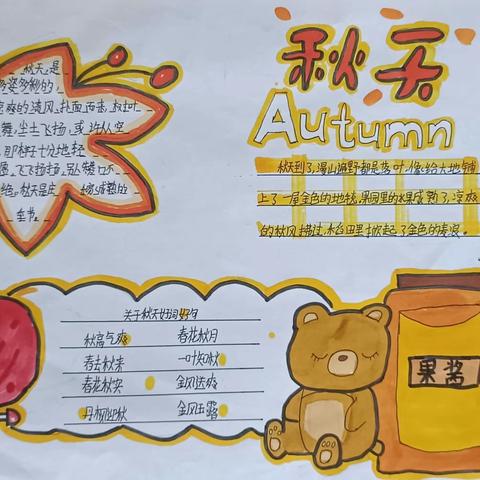 秋天
Autumn
秋天,是
多姿多彩的,
凉爽的清风,扑面而来,秋叶
舞,尘土飞扬,或许从空
,那样十分地轻
飞飞扬扬,
绝。秋天是庄
季节。
秋天到了,漫山遍野都是落叶,像给大地铺
上了一层金色的地毯,果园里的水果成熟了,凉爽
的秋风拂过,水稻田里掀起了金色的麦浪。
关于秋天好词好句
秋高气爽 春花秋月
春去秋来 一叶知秋
春花秋实 金风送爽
丹枫迎秋 金风玉露
果酱